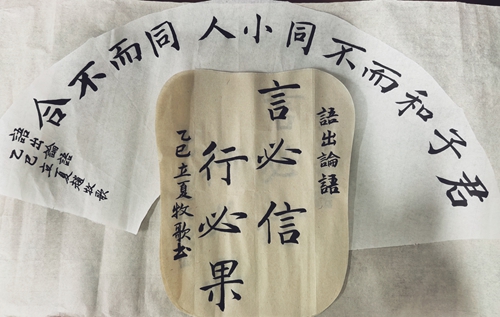 君子和而不同小人同而不合
語出論語
乙巳立夏趙牧歌
語出論語
言必信
行必果
乙巳立夏牧歌书